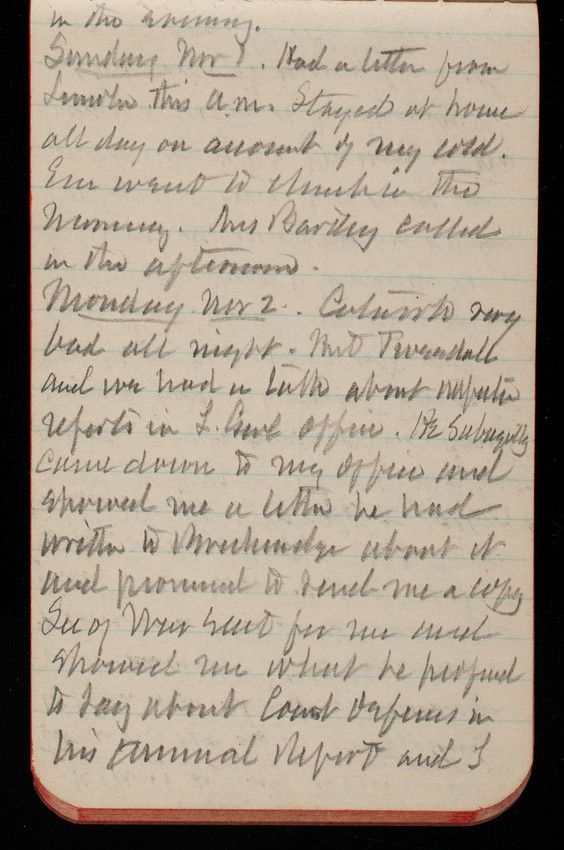 in the evening.
Sunday Nov 1. Had a letter from
Lincoln this a.m. Stayed at home
all day on account of my cold.
Em went to church in the
Morning. Mrs Bartley called
in the afternoon.
Monday Nov 2. Catarrh very
bad all night. Met Tweedale
and we had a talk about
reports in office. He subsequently
came down to my office and
showed me a letter he had
written to Breckinridge about it
and promised to send me a copy
Sec of War sent for me and
showed me what he proposed
to say about Coast defenses in
his Annual Report and I